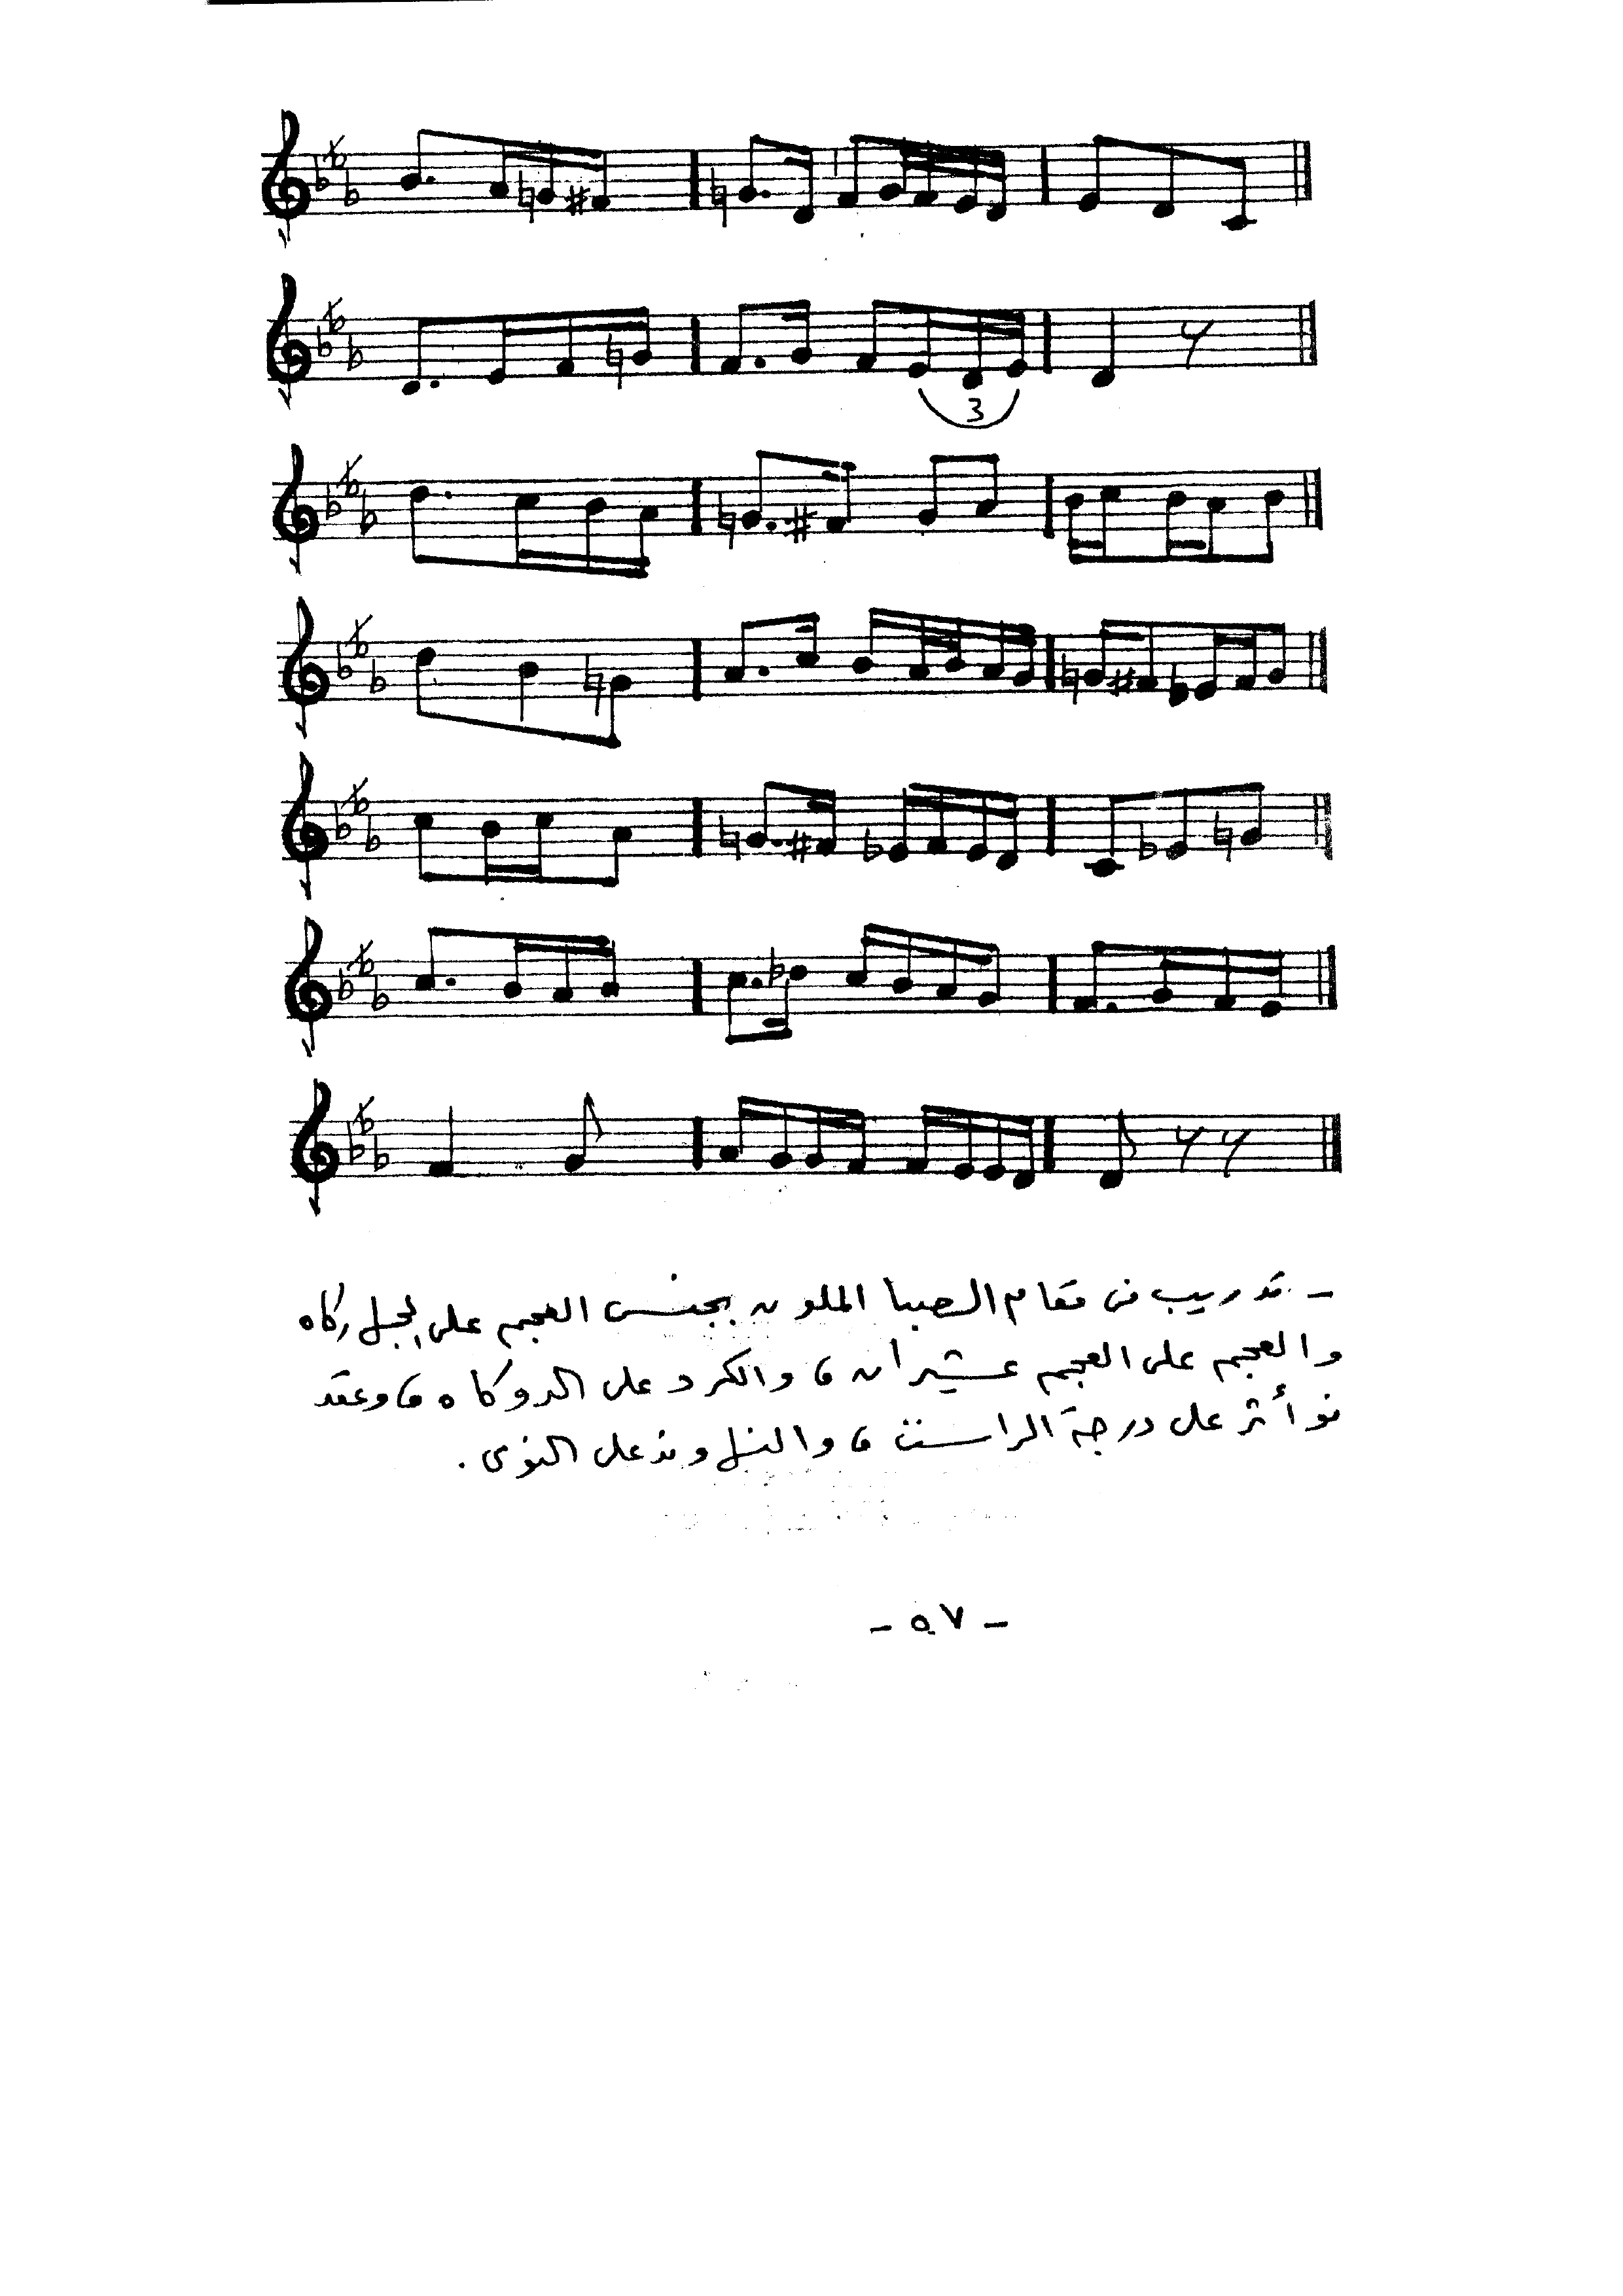 3
- تدريب فى مقام الصبا الملون بجنس العجم على الجهاركاه
والعجم على العجم عشيران ، والكرد على الدوكاه ، وعقد
نوأثر على درجة الراست ، والنهاوند على النوى .
- ٥٧ -